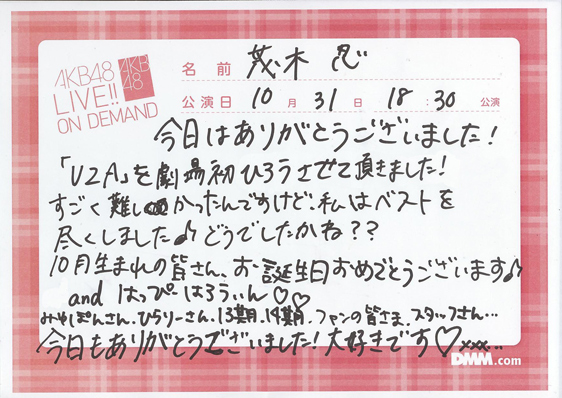 AKB48
LIVE!!
ON DEMAND
AKB
48
名前 茂木 忍
公演日 10月 31日 18:30 公演
今日はありがとうございました!
「UZA」を劇場初ひろうさせて頂きました!
すごく難しかったんですけど、私はベストを
尽くしました♪どうでしたかね??
10月生まれの皆さん、お誕生日おめでとうございます♪
and はっぴーはろうぃん♡♡
みゃぽんさん、ひらりーさん、13期、14期、ファンの皆さま、スタッフさん…
今日もありがとうございました!大好きです♡xxx...
DMM.com